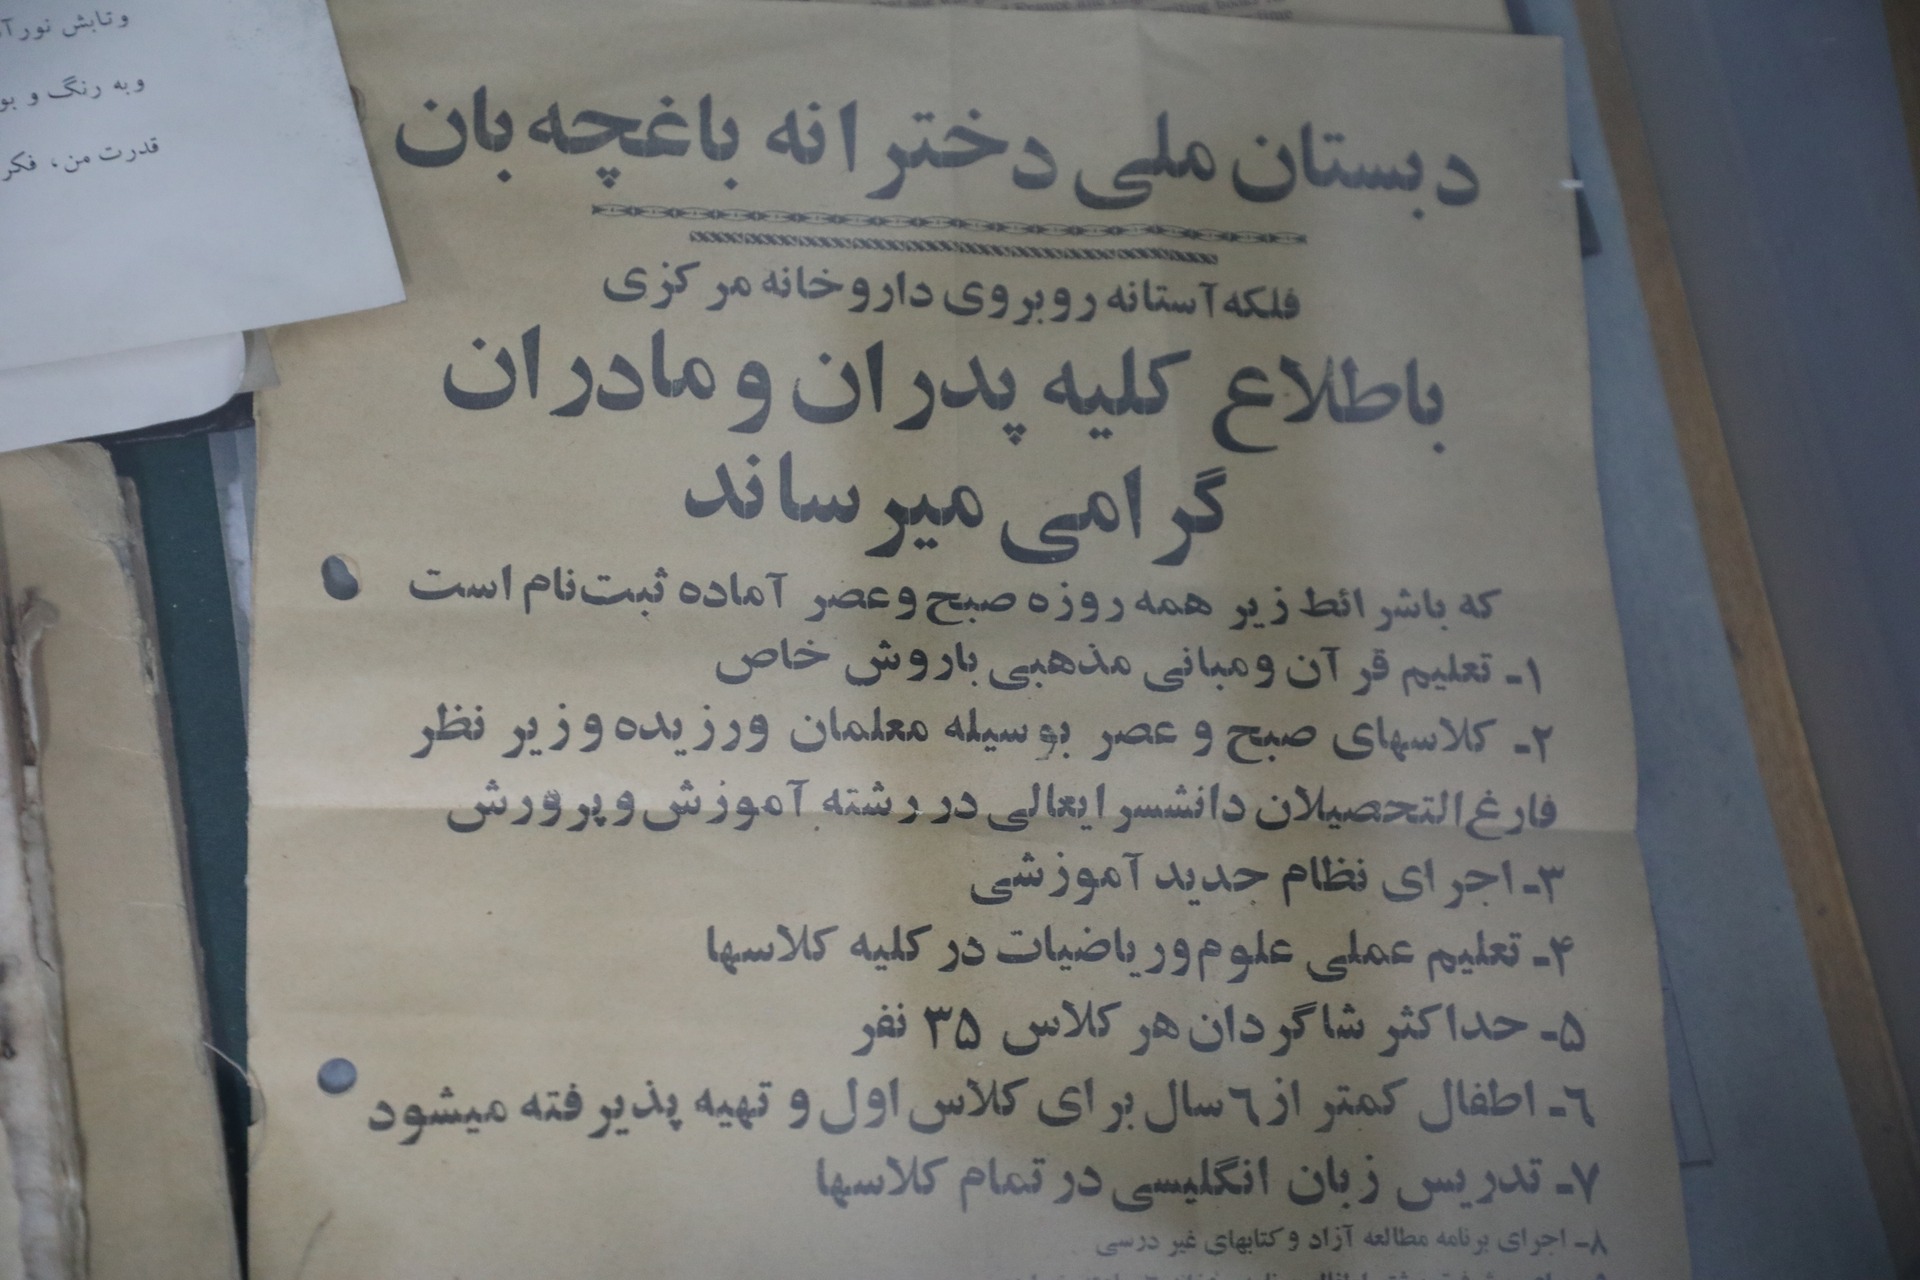 دبستان ملی دخترانه باغچه بان
فلکه آستانه روبروی داروخانه مرکزی
باطلاع کلیه پدران و مادران
گرامی میرساند
که باشرائط زیر همه روزه صبح و عصر آماده ثبت نام است
۱- تعلیم قرآن و مبانی مذهبی باروش خاص
۲- کلاسهای صبح و عصر بوسیله معلمان ورزیده و زیر نظر
فارغ التحصیلان دانشسرایعالی در رشته آموزش و پرورش
۳- اجرای نظام جدید آموزشی
۴- تعلیم عملی علوم و ریاضیات در کلیه کلاسها
۵- حداکثر شاگردان هر کلاس ۳۵ نفر
۶- اطفال کمتر از ۶ سال برای کلاس اول و تهیه پذیرفته میشود
۷- تدریس زبان انگلیسی در تمام کلاسها
۸- اجرای برنامه مطالعه آزاد و کتابهای غیر درسی
و تابش نور
و به رنگ و بو
قدرت من، فکر